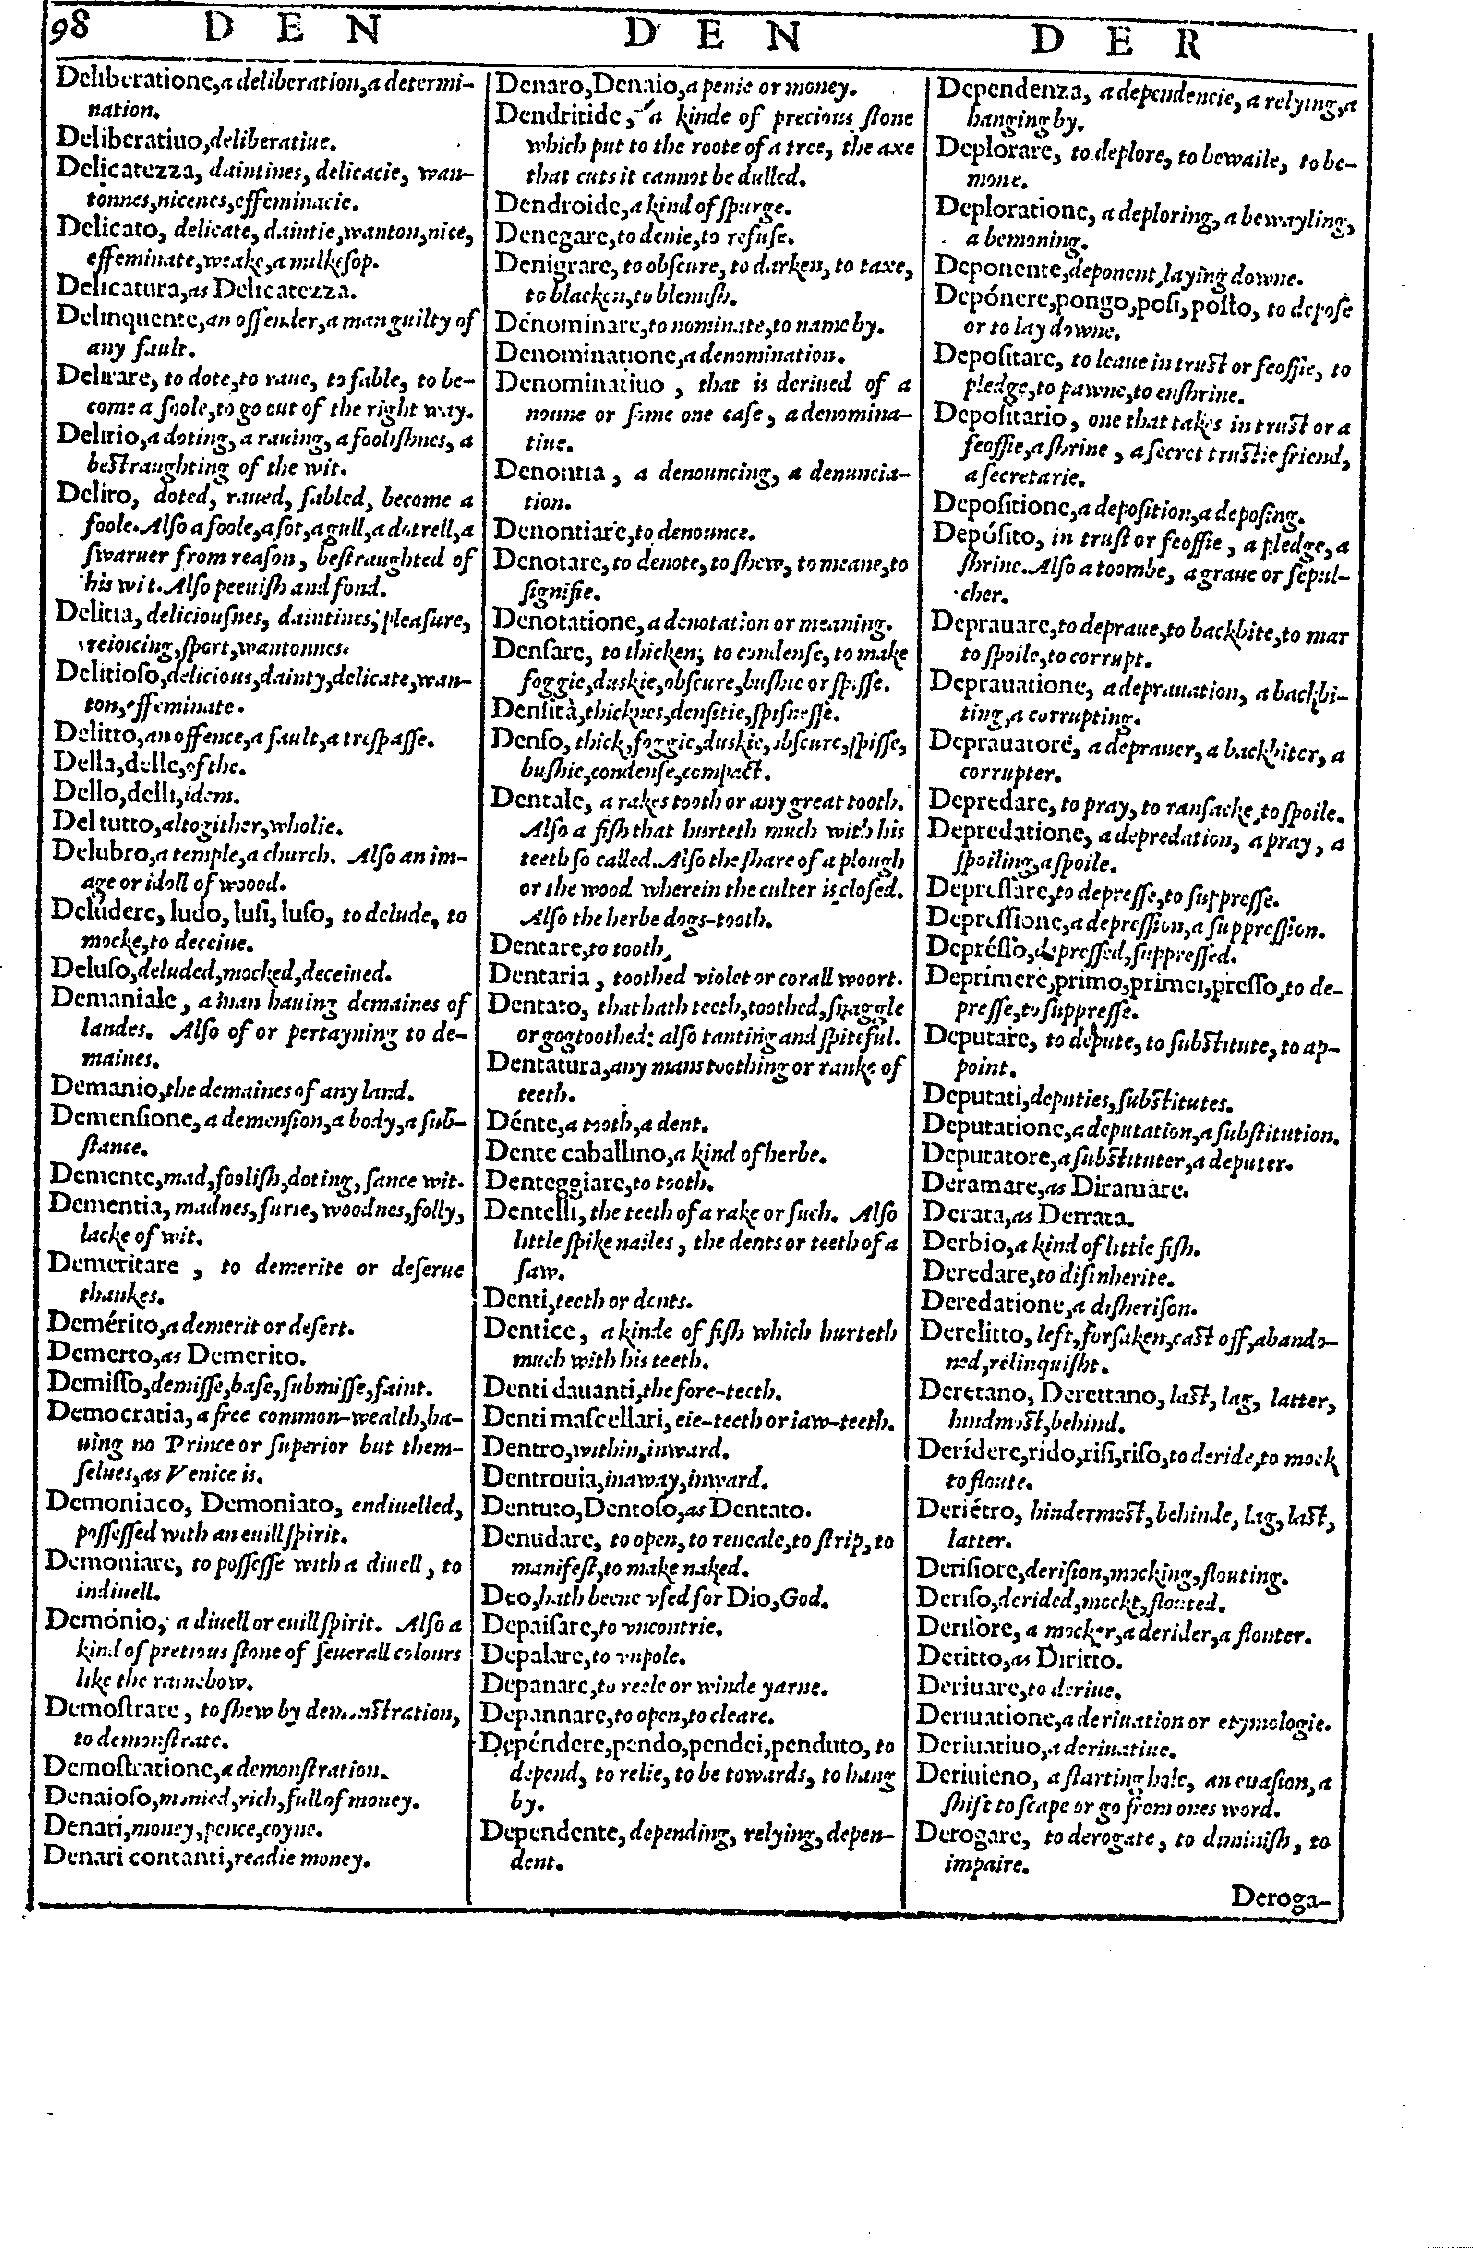 98 DEN DEN DER
Deliberatione, a deliberation, a determi-
nation.
Deliberatiuo, deliberatiue.
Delicatezza, daintines, delicacie, wan-
tonnes, nicenes, effeminacie.
Delicato, delicate, daintie, wanton, nice,
effeminate, weake, a milkesop.
Delicatura, as Delicatezza.
Delinquente, an offender, a man guilty of
any fault.
Delirare, to dote, to raue, to fable, to be-
come a foole, to go out of the right way.
Delirio, a doting, a rauing, a foolishnes, a
bestraughting of the wit.
Deliro, doted, raued, fabled, become a
foole. Also a foole, a sot, a gull, a dotrell, a
swaruer from reason, bestraughted of
his wit. Also peeuish and fond.
Delitia, deliciousnes, daintines, pleasure,
reioicing, sport, wantonnes.
Delitioso, delicious, dainty, delicate, wan-
ton, effeminate.
Delitto, an offence, a fault, a trespasse.
Della, delle, of the.
Dello, delli, idem.
Del tutto, altogither, wholie.
Delubro, a temple, a church. Also an im-
age or idoll of woood.
Delúdere, ludo, lusi, luso, to delude, to
mocke, to deceiue.
Deluso, deluded, mocked, deceiued.
Demaniale, a man hauing demaines of
landes. Also of or pertayning to de-
maines.
Demanio, the demaines of any land.
Demensione, a demension, a body, a sub-
stance.
Demente, mad, foolish, doting, sance wit.
Dementia, madnes, furie, woodnes, folly,
lacke of wit.
Demeritare, to demerite or deserue
thankes.
Demérito, a demerit or desert.
Demerto, as Demerito.
Demisso, demisse, base, submisse, faint.
Democratia, a free common-wealth, ha-
uing no Prince or superior but them-
selues, as Venice is.
Demoniaco, Demoniato, endiuelled,
possessed with an euill spirit.
Demoniare, to possesse with a diuell, to
indiuell.
Demónio, a diuell or euill spirit. Also a
kind of pretious stone of seuerall colours
like the rainebow.
Demostrare, to shew by demonstration,
to demonstrate.
Demostratione, a demonstration.
Denaioso, monied, rich, full of money.
Denari, money, pence, coyne.
Denari contanti, readie money.
Denaro, Denaio, a penie or money.
Dendritide, a kinde of precious stone
which put to the roote of a tree, the axe
that cuts it cannot be dulled.
Dendroide, a kind of spurge.
Denegare, to denie, to refuse.
Denigrare, to obscure, to darken, to taxe,
to blacken, to blemish.
Dénominare, to nominate, to name by.
Denominatione, a denomination.
Denominatiuo, that is deriued of a
noune or some one case, a denomina-
tiue.
Denontia, a denouncing, a denuncia-
tion.
Denontiare, to denounce.
Denotare, to denote, to shew, to meane, to
signifie.
Denotatione, a denotation or meaning.
Densare, to thicken, to condense, to make
foggie, duskie, obscure, bushie or spisse.
Densità, thicknes, densitie, spisnesse.
Denso, thick, foggie, duskie, obscure, spisse,
bushie, condense, compact.
Dentale, a rakes tooth or any great tooth.
Also a fish that hurteth much with his
teeth so called. Also the share of a plough
or the wood wherein the culter is closed.
Also the herbe dogs-tooth.
Dentare, to tooth.
Dentaria, toothed violet or corall woort.
Dentato, that hath teeth, toothed, snaggle
or gogtoothed: also tanting and spiteful.
Dentatura, any mans toothing or ranke of
teeth.
Dénte, a tooth, a dent.
Dente caballino, a kind of herbe.
Denteggiare, to tooth.
Dentelli, the teeth of a rake or such. Also
little spike nailes, the dents or teeth of a
saw.
Denti, teeth or dents.
Dentice, a kinde of fish which hurteth
much with his teeth.
Denti dauanti, the fore-teeth.
Denti mascellari, eie-teeth or iaw-teeth.
Dentro, within, inward.
Dentrouia, inaway, inward.
Dentuto, Dentoso, as Dentato.
Denudare, to open, to reueale, to strip, to
manifest, to make naked.
Deo, hath beene vsed for Dio, God.
Depaisare, to vncontrie.
Depalare, to vnpole.
Depanare, to reele or winde yarne.
Depannare, to open, to cleare.
Depéndere, pendo, pendei, penduto, to
depend, to relie, to be towards, to hang
by.
Dependente, depending, relying, depen-
dent.
Dependenza, a dependencie, a relying, a
hanging by.
Deplorare, to deplore, to bewaile, to be-
mone.
Deploratione, a deploring, a bewayling,
a bemoning.
Deponente, deponent, laying downe.
Depónere, pongo, posi, posto, to depose
or to lay downe.
Depositare, to leaue in trust or feoffie, to
pledge, to pawne, to enshrine.
Depositario, one that takes in trust or a
feoffie, a shrine, a secret trustie friend,
a secretarie.
Depositione, a deposition, a deposing.
Depósito, in trust or feoffie, a pledge, a
shrine. Also a toombe, a graue or sepul-
cher.
Deprauare, to depraue, to backbite, to mar
to spoile, to corrupt.
Deprauatione, a deprauation, a backbi-
ting, a corrupting.
Deprauatoré, a deprauer, a backbiter, a
corrupter.
Depredare, to pray, to ransacke, to spoile.
Depredatione, a depredation, a pray, a
spoiling, a spoile.
Depressare, to depresse, to suppresse.
Depressione, a depression, a suppression.
Deprésso, depressed, suppressed.
Deprimere, primo, primei, presso, to de-
presse, to suppresse.
Deputare, to depute, to substitute, to ap-
point.
Deputati, deputies, substitutes.
Deputatione, a deputation, a substitution.
Deputatore, a substituter, a deputer.
Deramare, as Diramare.
Derata, as Derrata.
Derbio, a kind of little fish.
Deredare, to disinherite.
Deredatione, a disherison.
Derelitto, left, forsaken, cast off, abando-
ned, relinquisht.
Deretano, Derettano, last, lag, latter,
hindmost, behind.
Derídere, rido, risi, riso, to deride, to mock
to floute.
Deriétro, hindermost, behinde, lag, last,
latter.
Derisione, derision, mocking, flouting.
Deriso, derided, mockt, flouted.
Derisore, a mocker, a derider, a flouter.
Deritto, as Diritto.
Deriuare, to deriue.
Deriuatione, a deriuation or etymologie.
Deriuatiuo, a deriuatiue.
Deriuieno, a starting hole, an euasion, a
shift to scape or go from ones word.
Derogare, to derogate, to diminish, to
impaire.
Deroga-